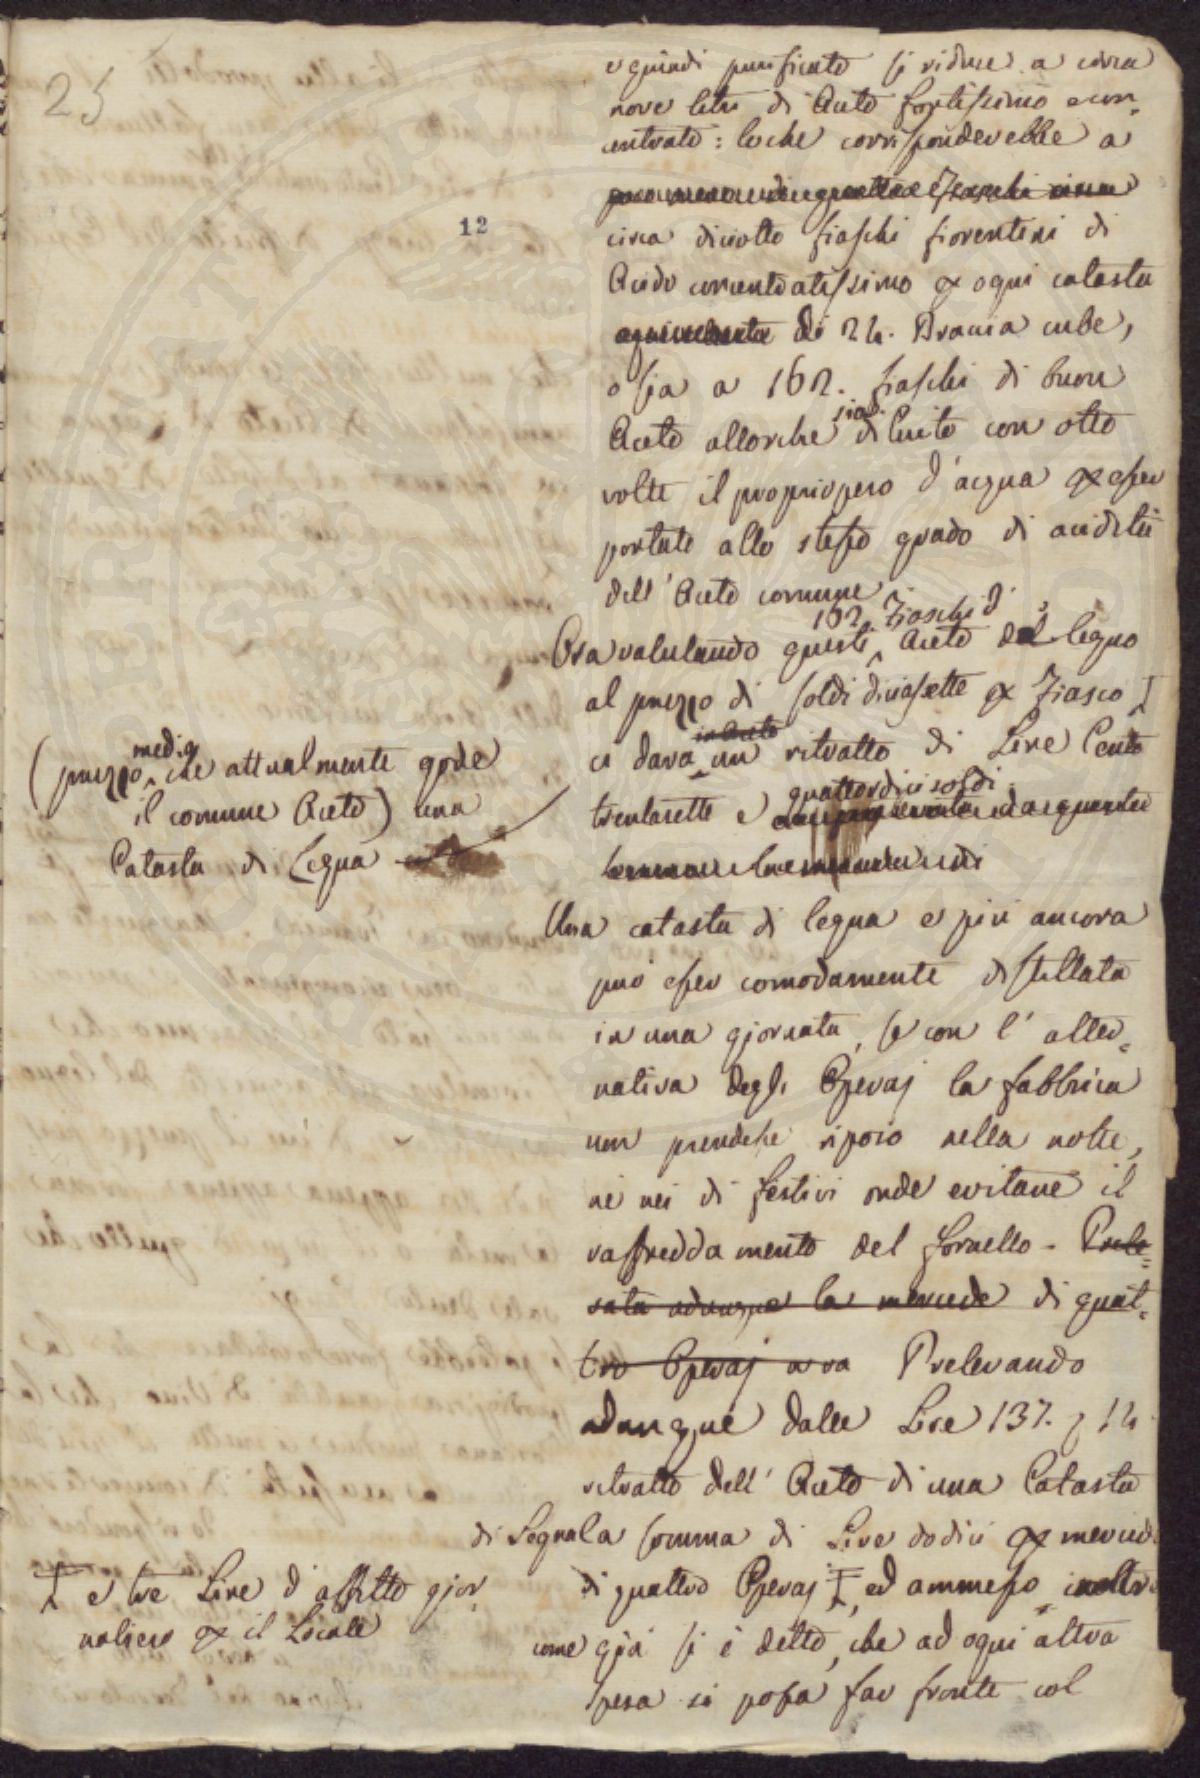 25
12
e quindi purificato si riduce a circa
nove litri di Aceto fortissimo e con-
centrato: loche corrisponderebbe a
circa diciotto fiaschi fiorentini di
Acido concentratissimo p ogni catasta
di 24. Braccia cube,
o sia a 162. fiaschi di buon
Aceto allorche siasi diluito con otto
volte il proprio peso d'acqua p esser
portato allo stesso grado di acidità
dell'Aceto comune
162. Fiaschi d'
Ora valutando questi Aceto di legno
al prezzo di soldi diciasette p Fiasco
in Aceto
ci darà un ritratto di Lire Cento
quattordici soldi
trentasette e
(prezzo medio che attualmente gode
il comune Aceto) una
Catasta di Legna
Una catasta di legna e più ancora
può esser comodamente distillata
in una giornata, se con l'alter-
nativa degli Operaj la fabbrica
non prendesse riposo nella notte,
nè nei dì festivi onde evitare il
raffreddamento del fornello - Prele-
vata adunque la mercede di quat-
tro Operaj Prelevando
adunque dalle Lire 137. 14
ritratto dell'Aceto di una Catasta
di Legna la somma di Lire dodici p mercede
di quattro Operaj, ed ammesso inoltre
come già si è detto, che ad ogni altra
spesa si possa far fronte col
e tre Lire d'affitto gior
naliero p il Locale